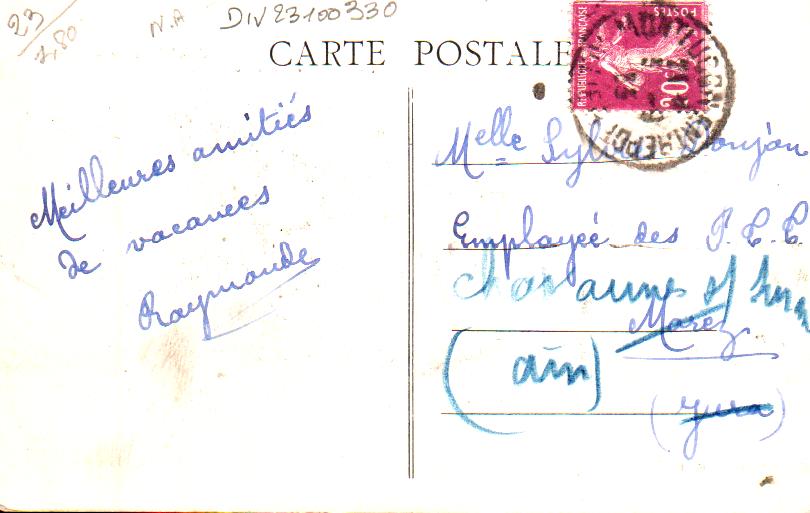 23
1,80
N.A
DIV23100330
CARTE POSTALE
REPUBLIQUE FRANÇAISE
POSTES
20c
MONTLUÇON ENTREPOT
Meilleures amitiés
de vacances
Raymonde
Melle Sylvie
Employée des P.T.T.
Chavannes s/ Suran
Morez
(ain)
(Jura)